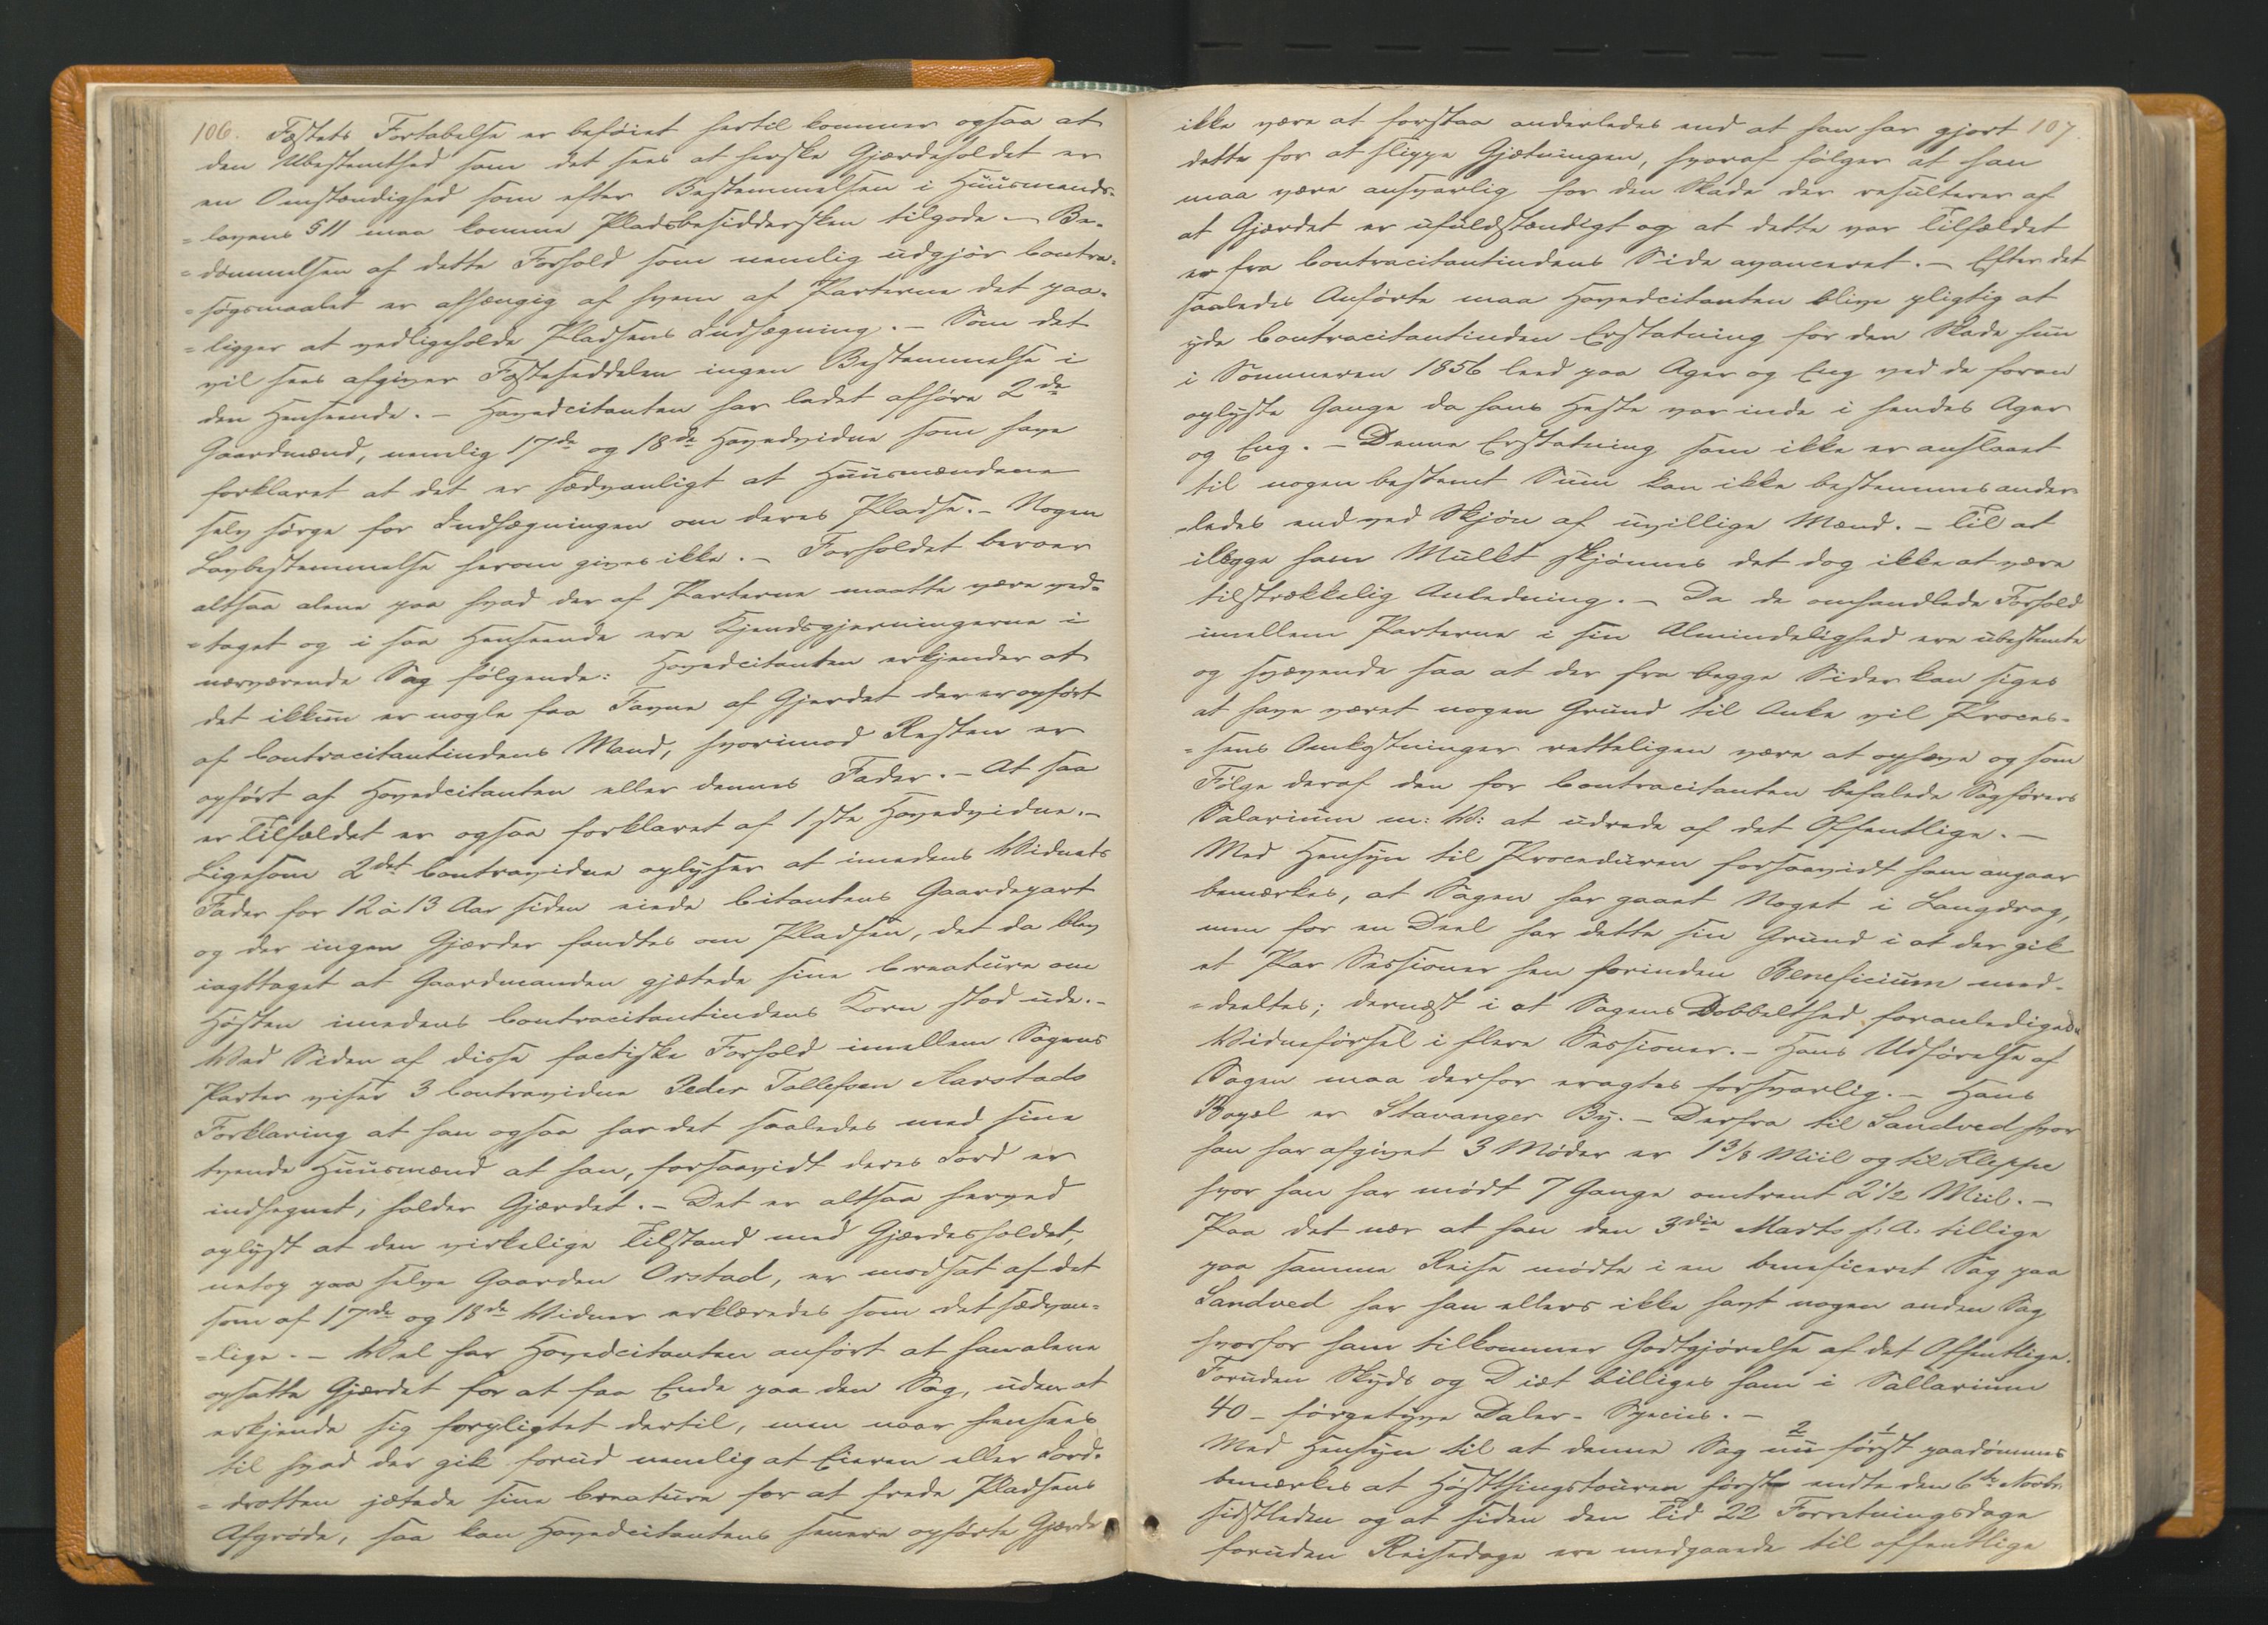 106. Fæstets Fortabelse er beföiet hertil kommer ogsaa at
den Ubestemthed som det sees at herske Gjærdeholdet er
en Omstændighed som efter Bestemmelsen i Huusmands-
=lovens §11 maa komme Pladsbesiddersken tilgode. – Be-
=dömmelsen af dette Forhold som nemlig udgjör Contra-
=sögsmaalet er afhængig af hvem af Parterne det paa-
=ligger at vedligeholde Pladsens Indhegning. – Som det
vil sees afgiver Fæsteseddelen ingen Bestemmelse i
den Henseende. – Hovedcitanten har ladet afhöre 2de
Gaardmænd, nemlig 17de og 18de Hovedvidne som have
forklaret at det er sædvanligt at Huusmændene
selv sörge for Indhægningen om deres Pladse. – Nogen
Lovbestemmelse herom gives ikke. – Forholdet beroer
altsaa alene paa hvad der af Parterne maatte være ved-
=taget og i saa Henseende ere Kjendsgjerningerne i
nærværende Sag fölgende: Hovedcitanten erkjender at
det ikkun er nogle faa Favne af Gjerdet der er opfört
af Contracitantindens Mand, hvorimod Resten er
opfört af Hovedcitanten eller dennes Fader. – At saa
er Tilfældet er ogsaa forklaret af 1ste Hovedvidne. –
Ligesom 2det Contravidne oplyser at imedens Vidnets
Fader for 12 à 13 Aar siden eiede Citantens Gaardepart
og der ingen Gjærder fandtes om Pladsen, det da blev
iagttaget at Gaardmanden gjætede sine Creature om
Hösten imedens Contracitantindens Korn stod ude. –
Ved Siden af disse factiske Forhold imellem Sagens
Parter viser 3 Contravidne Peder Tollefsen Aarstads
Forklaring at han ogsaa har det saaledes med sine
tvende Huusmænd at han, forsaavidt deres Jord er
indhegnet, holder Gjærdet. – Det er altsaa herved
oplyst at den virkelige Tilstand med Gjærdesholdet,
netop paa selve Gaarden Orstad, er modsat af det
som af 17de og 18de Vidner erklæredes som det sædvan-
=lige. – Vel har Hovedcitanten anfört at han alene
opsatte Gjærdet for at faa Ende paa den Sag, uden at
erkjende sig forpligtet dertil, men naar hensees
til hvad der gik forud nemlig at Eieren eller Jord-
=drotten jætede sine Creature for at frede Pladsens
Afgröde, saa kan Hovedcitantens senere opförte Gjærde
ikke være at forstaa anderledes end at han har gjort 107.
dette for at slippe Gjætningen, hvoraf fölger at han
maa være ansvarlig for den Skade der resulterer af
at Gjærdet er ufuldstændigt og at dette var Tilfældet
er fra Contracitantindens Side avanceret. – Efter det
saaledes Anförte maa Hovedcitanten blive pligtig at
yde Contracitantinden Erstatning for den Skade hun
i Sommeren 1856 leed paa Ager og Eng ved de foran
oplyste Gange da hans Heste var inde i hendes Ager
og Eng. – Denne Erstatning som ikke er anslaaet
til nogen bestemt Sum kan ikke bestemmes ander-
ledes end ved Skjön af uvillige Mænd. – Til at
ilægge ham Mulkt skjönnes det dog ikke at være
tilstrækkelig Anledning. – Da de omhandlede Forhold
imellem Parterne i sin Almindelighed ere ubestemte
og svævende saa at der fra begge Sider kan siges
at have været nogen Grund til Anke vil Proces-
=sens Omkostninger retteligen være at ophæve og som
Fölge deraf den for Contracitanten befalede Sagförers
Salarium m: V: at udrede af det Offentlige. –
Med Hensyn til Proceduren forsaavidt ham angaar
bemærkes, at Sagen har gaaet Noget i Langdrag,
men for en Deel har dette sin Grund i at der gik
et Par Sessioner hen forinden Beneficium med-
=deeltes; dernæst i at Sagens Dobbelthed foranledigede
Vidneförsel i flere Sessioner. – Hans Udförelse af
Sagen maa derfor eragtes forsvarlig. – Hans
Bopæl er Stavanger By. – Derfra til Sandved hvor
han har afgivet 3 Möder er 1 3/8 Miil og til Kleppe
hvor han har mödt 7 Gange omtrent 2 1/2 Miil. –
Paa det nær at han den 3die Marts f. A. tillige
paa samme Reise mödte i en beneficeret Sag paa
Sandved har han ellers ikke havt nogen anden Sag
hvorfor ham tilkommer Godtgjörelse af det Offentlige.
Foruden Skyds og Diæt billiges ham i Sallarium
40 –förgetyve Daler – Species. –
2 1
Med Hensyn til at denne Sag nu först paadömmes
bemærkes at Höstthingstouren först endte den 6te Novbr.
sidstleden og at siden den Tid 22 Forretningsdage
foruden Reisedage ere medgaaede til offentlige